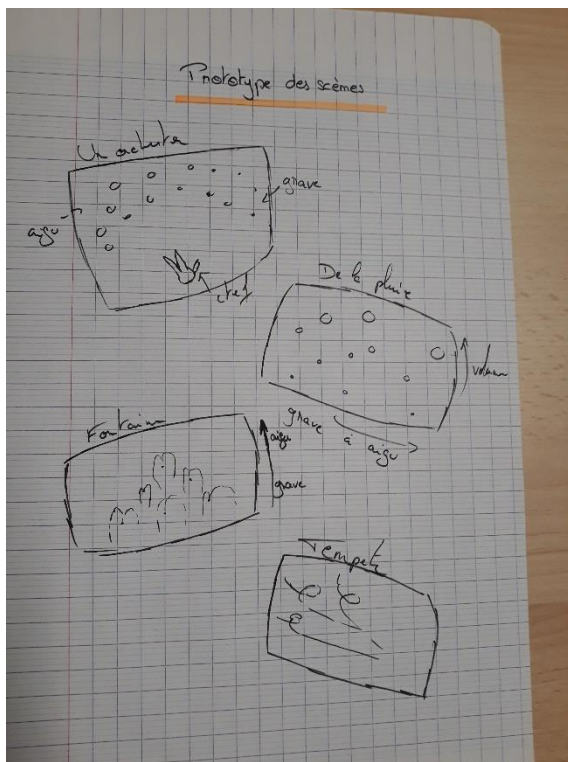 Prototype des scèmes
Un orchestre
grave
aigu
chef
De la pluie
volume
grave
à aigu
Fontaine
aigu
grave
Tempete